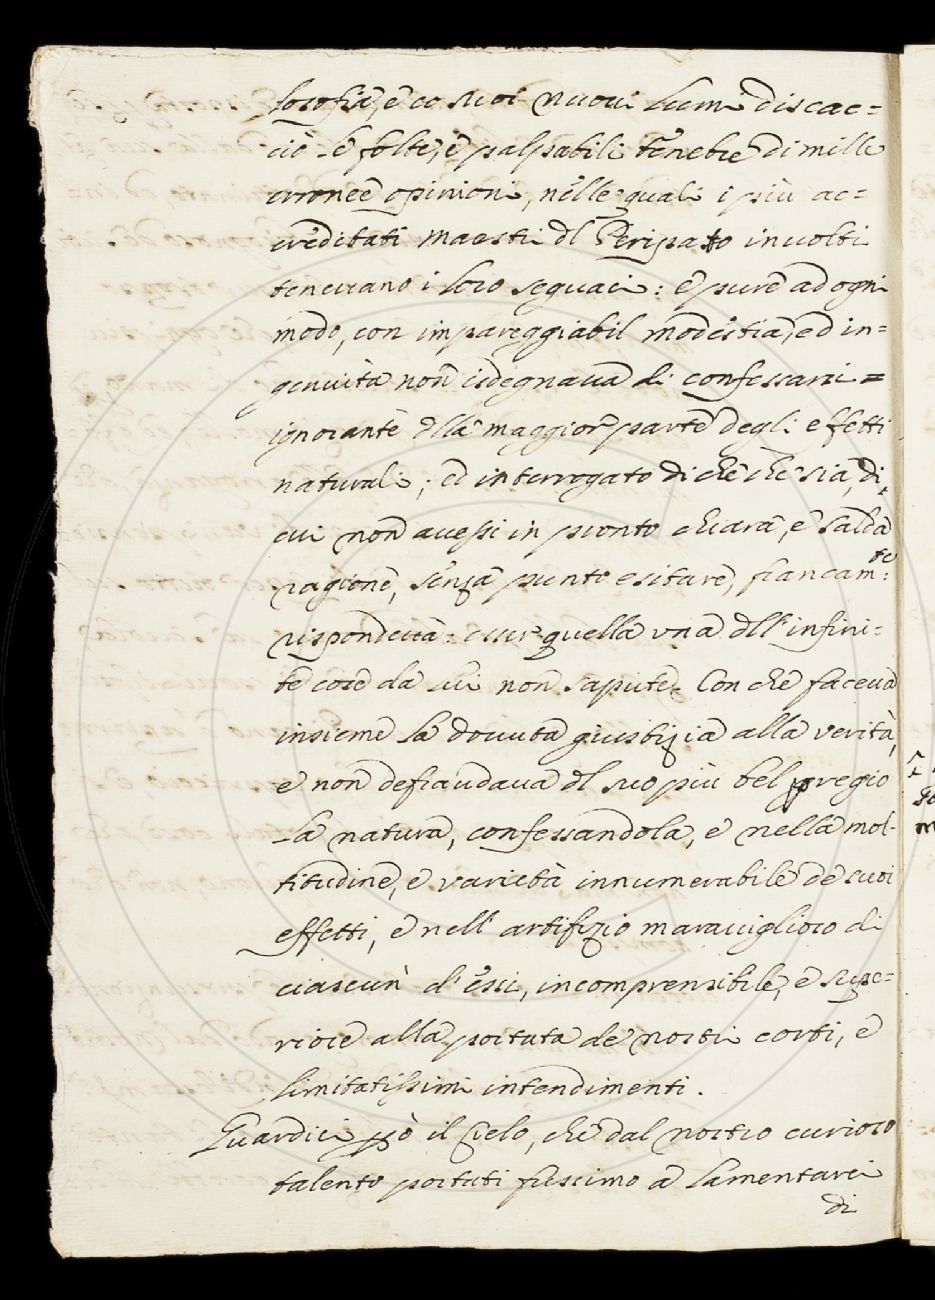 losofia, e co suoi nuovi lumi discac=
ciò le folte, e palpabili tenebre di mille
erronee opinioni, nelle quali i più ac=
creditati maestri dl Peripato involti
tenevano i loro seguaci: e pure ad ogni
modo, con impareggiabil modestia, ed in=
genuità non isdegnava di confessarsi =
ignorante dlla maggior parte degli effetti
naturali; ed interrogato di che che sia, di
cui non avessi in pronto chiara, e salda
ragione, senza punto esitare, francam:te
rispondeva: esser quella una dll'infini=
te cose da lui non sapute. Con che faceva
insieme la dovuta giustizia alla verità,
e non defraudava dl suo più bel pregio
la natura, confessandola, e nella mol-
titudine, e varietà innumerabile de suoi
effetti, e nell'artifizio maraviglioso di
ciascun d'essi, incomprensibile, e supe=
riore alla portata de nostri corti, e
limitatissimi intendimenti.
Guardici pò il Cielo, che dal nostro curioso
talento portati fussimo a lamentarci
di